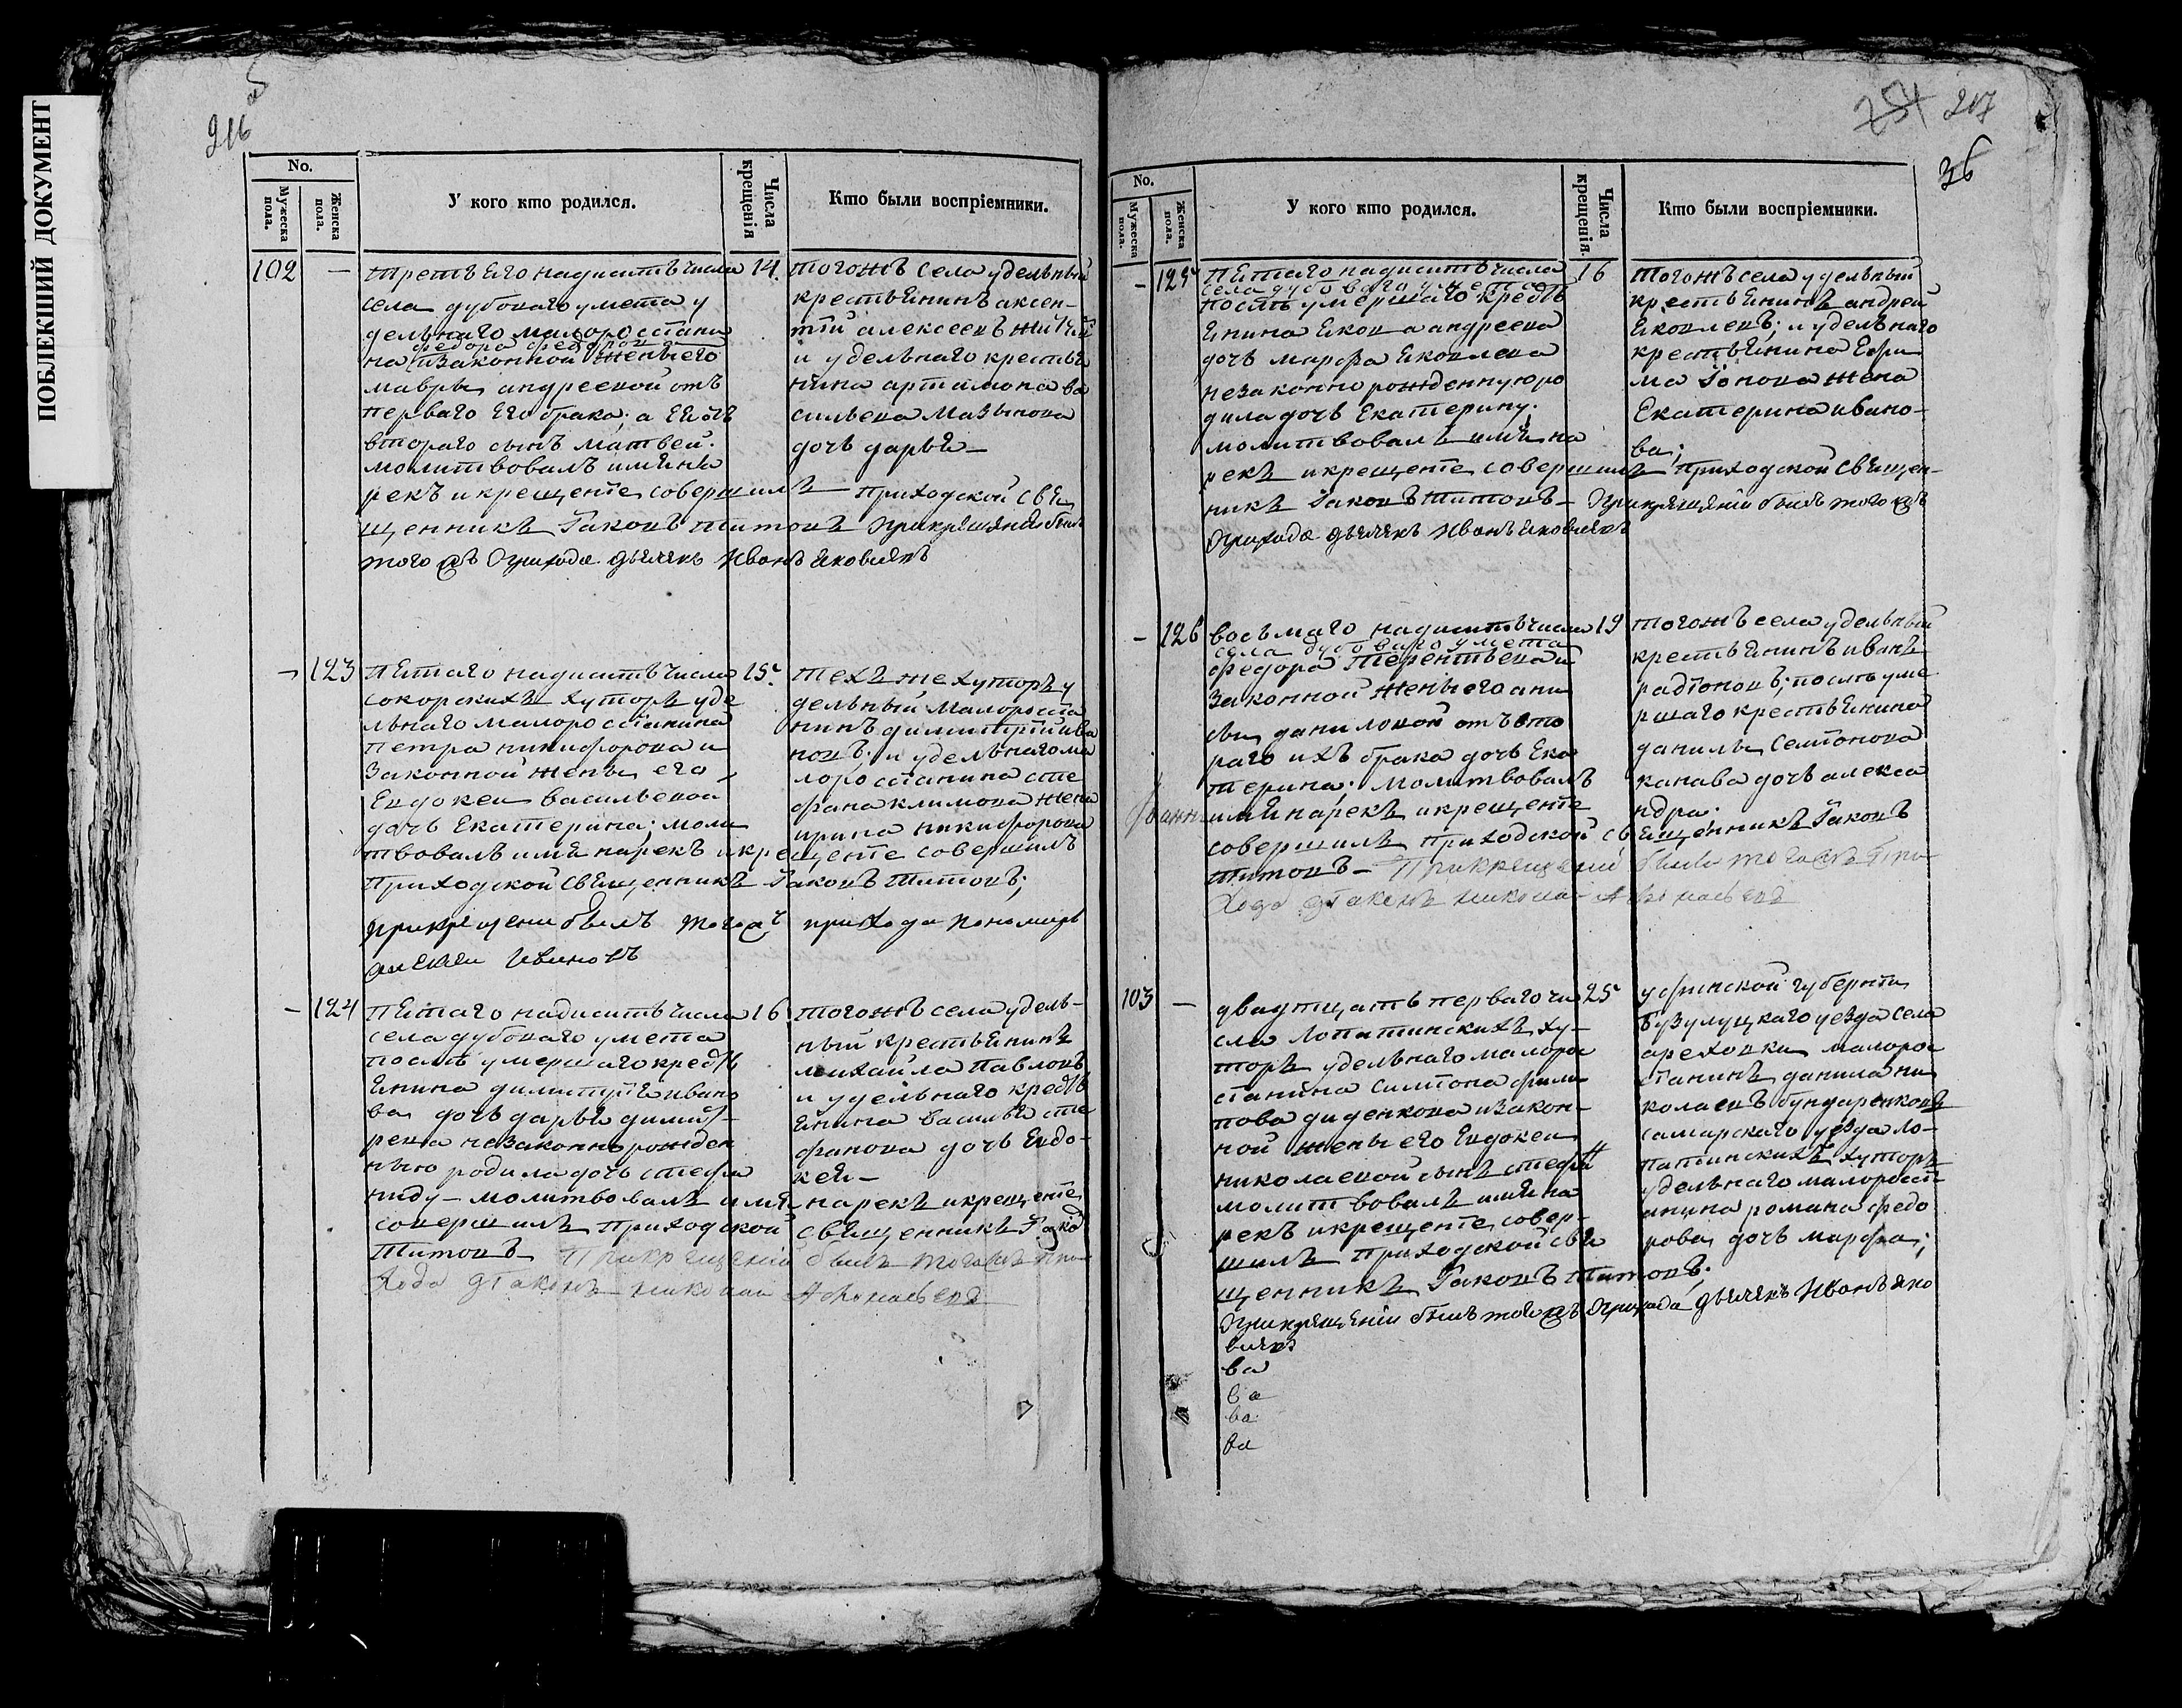 ПОБЛЕКШИЙ ДОКУМЕНТ
216
No.
Мужеска пола.
Женска пола.
У кого кто родился.
Числа крещенія
Кто были воспріемники.
102 — третьегонадцать числа 14.
села дубоваго умета у
дельнаго малоросстани
федора федорова
на изаконной женыего
мавры андреевой отъ
перваго его брака; а ея отъ
втораго сынъ матвей.
молитвовалъ имяна
рекъ и крещенте совершилъ — приходской свя
щенникъ Iаковъ титовъ При крещении былъ
того жъ Прихода дьячекъ Иванъ яковлевъ
тогожъ села удельный
крестьянинъ аксен-
тий алексеевъ
и удельнаго крестья
нина артамона ва
сильева
дочь дарья —
— 123 пятагонадцать числа 15.
сокорскихъ хуторъ уде
льнаго малоросстанина
петра никифорова и
законной жены его
Евдокеи васильевой
дочь Екатерина; моли
твовалъ имя нарекъ и крещенте совершилъ
приходской священникъ Iаковъ титовъ;
прикрещени былъ тогож прихода пономарь
алексеи Ивановъ
техъ же хуторъ у
дельный малоросста
нинъ димитрий ива
новъ; и удельнаго ма
лоросстанина сте
фана климова жена
ирина никифорова
— 124 пятагонадцать числа 16.
села дубоваго умета
послъ умершаго крестъ
янина димитрия ивано
ва дочь дарья димит-
рева незаконнорожден
ную родила дочь стефа
ниду — молитвовалъ имя — нарекъ и крещенте
совершилъ приходской священникъ Iаковъ
титовъ При крещении былъ тогожъ при
хода дтаконъ николаи Афонасьевъ
тогожъ села удель-
ный крестьянинъ
михайла павловъ
и удельнаго крестъ
янина василья сте
фанова дочь Евдо-
кея —
254 217
36
No.
Мужеска пола.
Женска пола.
У кого кто родился.
Числа крещенія.
Кто были воспріемники.
— 125 пятагонадцать числа 16
села дубоваго умета
послъ умершаго крестъ
янина якова андреева
дочь марфа яковлева
незаконно рожденную ро
дила дочь Екатерину;
молитвовалъ имя на
рекъ и крещенте совершилъ приходской священ-
никъ Iаковъ титовъ — При крещении былъ того жъ
Прихода дьячекъ Иванъ яковлевъ
тогожъ села удельный
крестьянинъ андрей
яковлевъ; и удельнаго
крестьянина Ефи
ма Iонова жена
Екатерина ивано-
ва;
— 126 восьмагонадцать числа 19
села дубоваго умета
федора терентьева и
законной женыего ани
сьи даниловой отъ вто
раго ихъ брака дочь Ека
терина; молитвовалъ
имя нарекъ и крещенте
совершилъ приходской священникъ Iаковъ
титовъ — При крещении былъ тогожъ при
хода дтаконъ николаи Афонасьевъ
тогожъ села удельный
крестьянинъ иванъ
радтоновъ; послъ уме
ршаго крестьянина
данилы семтонова
канава дочь алекса
ндра;
103 — двадтцать перваго чи 25
сла лопатинскихъ ху-
торъ удельнаго малоросс
станина симтона фили
пова диденкова изакон-
ной жены его Евдокеи
николаевой сынъ стефа
молитвовалъ имя на
рекъ и крещенте совер-
шилъ приходской свя
щенникъ Iаковъ титовъ;
При крещении былъ того жъ Прихода дьячекъ Иванъ яко
влевъ
ва
ва
ва
ва
уфинской губернти
бузулуцкаго уезда села
ареховки малоросс
станинъ данила ни
колаевъ бундаренковъ
самарскаго уезда ло-
патинскихъ хуторъ
удельнаго малоросст
анина романа федо
рова дочь марфа;